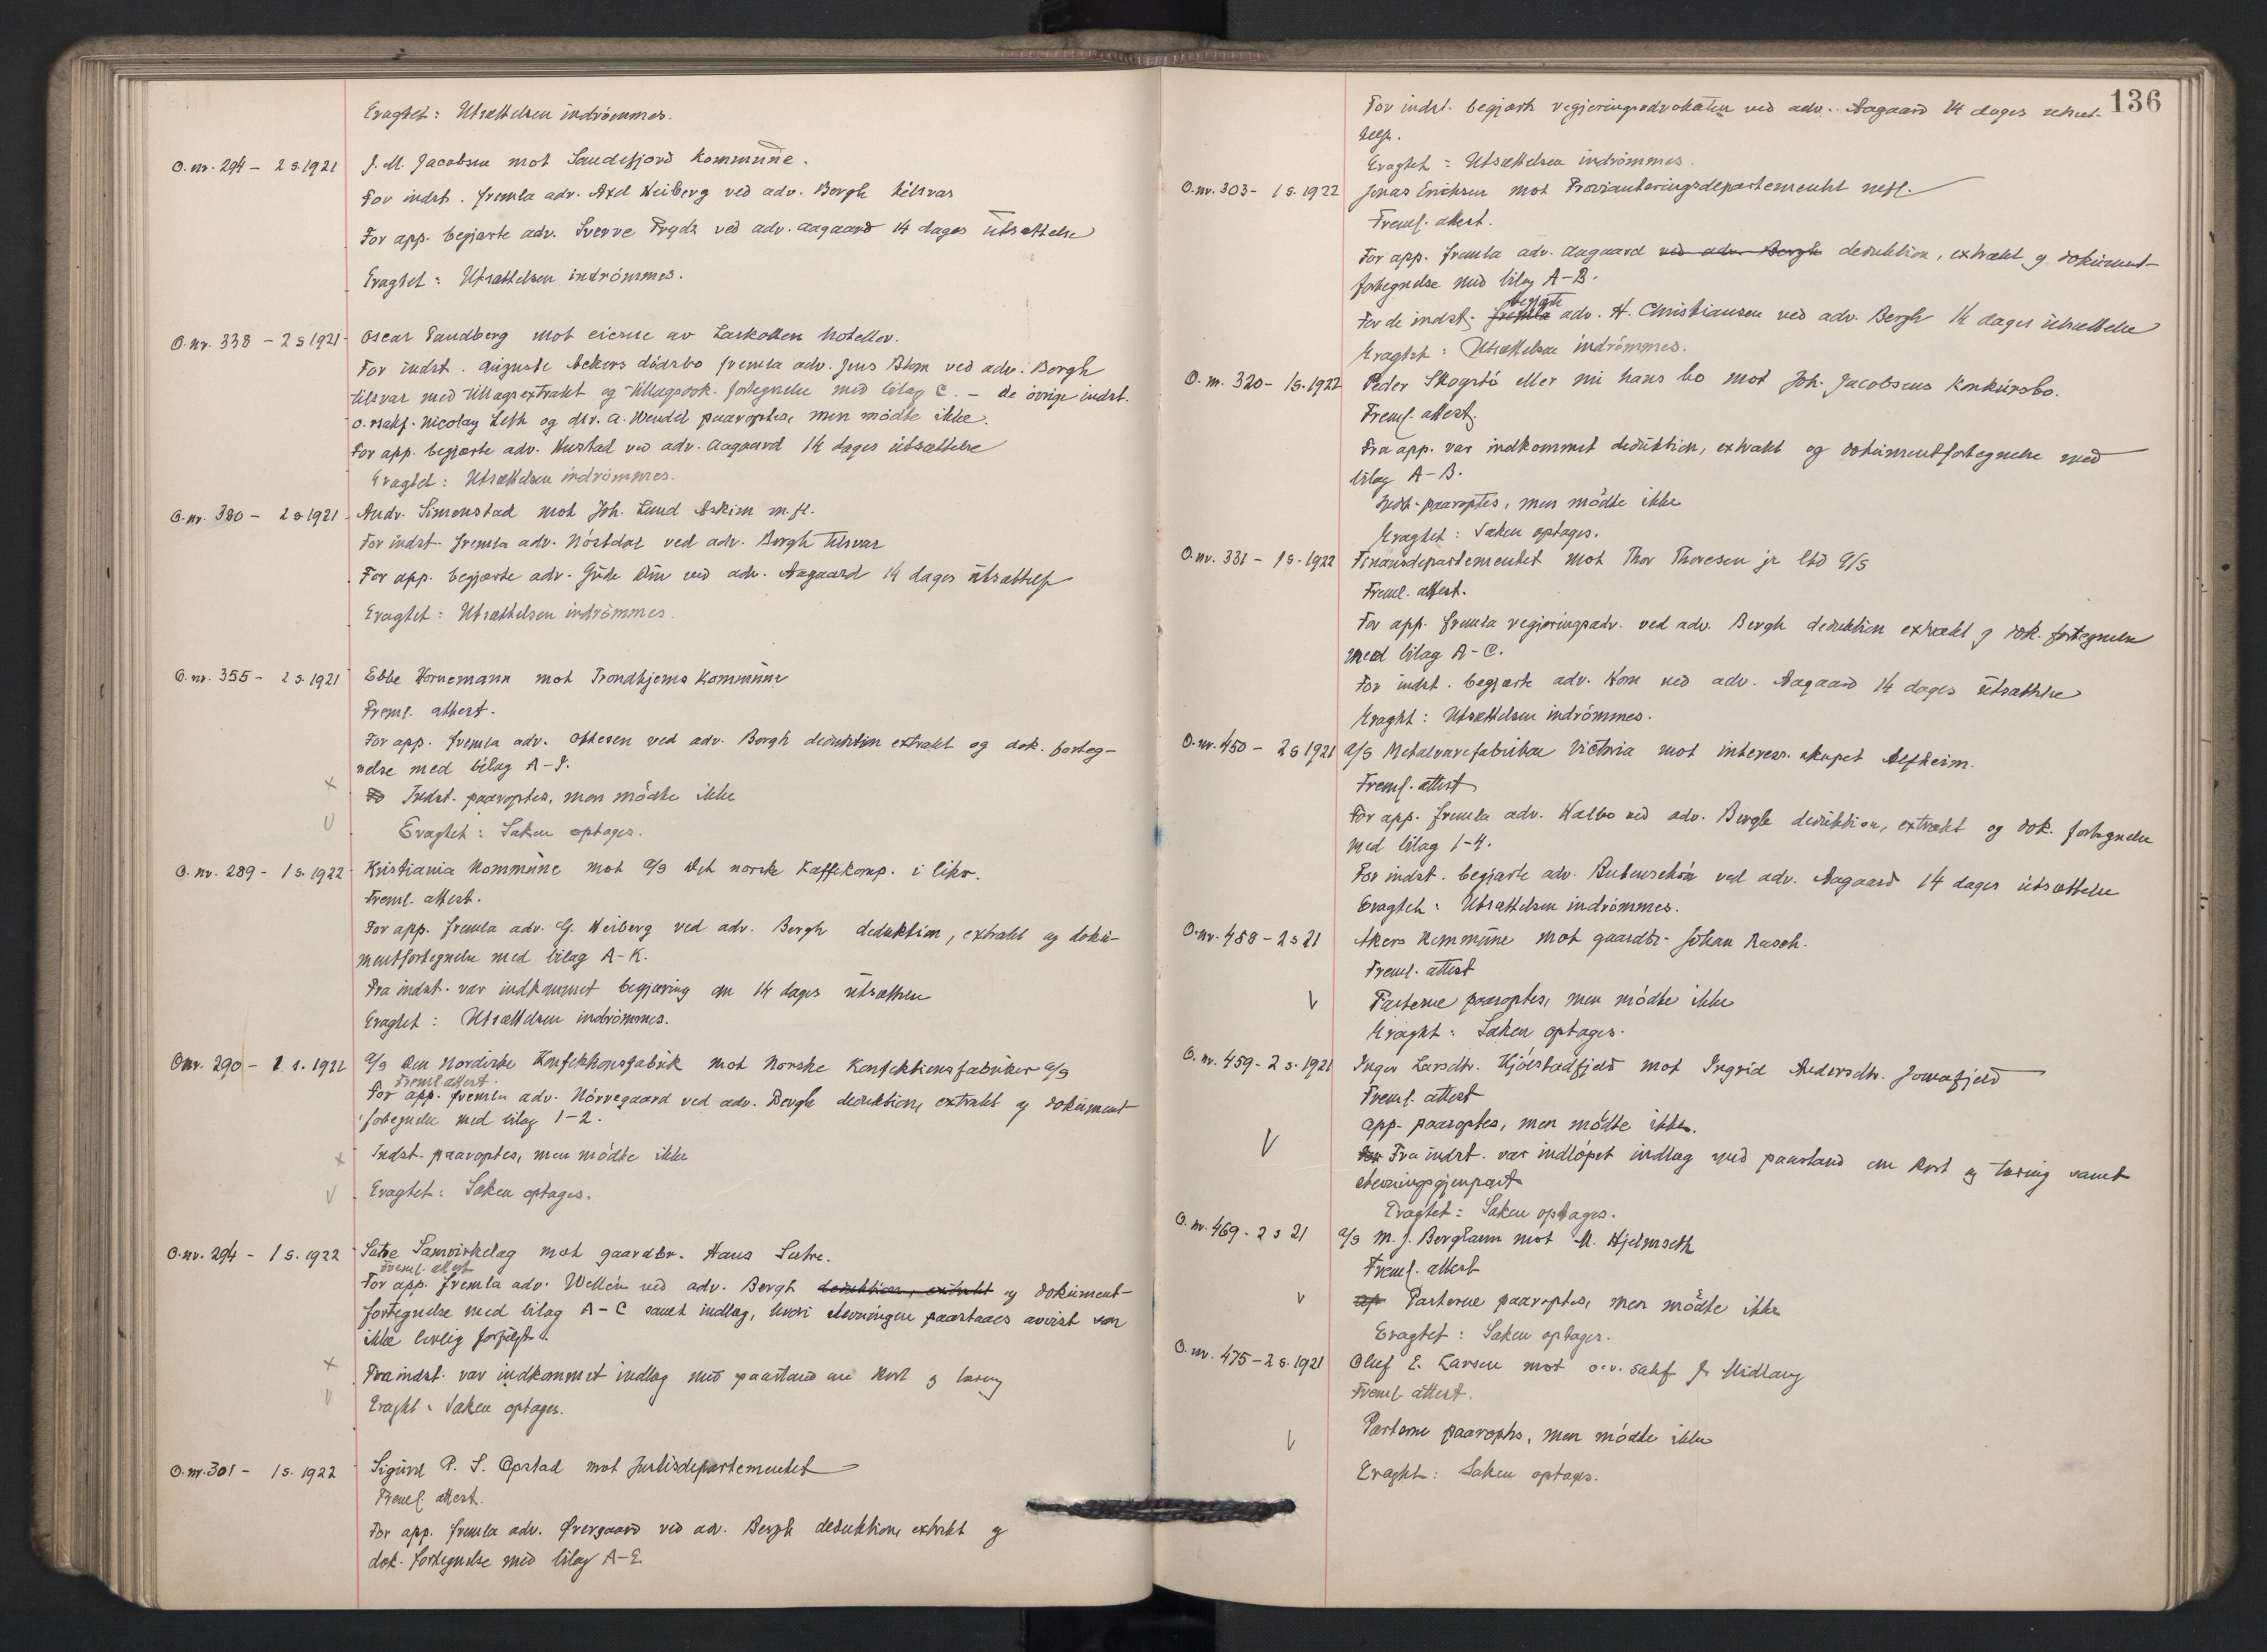 Eragtet: Utsættelsen indrömmes.
O. nr. 294 - 2 s. 1921 J. M. Jacobsen mot Sandefjord kommune.
For indst. fremla adv. Axel Heiberg ved adv. Bergh tilsvar
For app. begjærte adv. Sverre Frydz ved adv. Aagaard 14 dages utsættelse
Eragtet: Utsættelsen indrömmes.
O. nr. 338 - 2 s 1921 Oscar Sandberg mot eierne av Larkollen hoteller.
For indst. Auguste Ackers dödsbo fremla adv. Jens Blom ved adv. Bergh
tilsvar med tillægsextrakt og tillægsdok. fortegnelse med bilag C. - De övrige indst.
o.rsakf. Nicolay Leth og dir. A. Wendel paaroptes, men mödte ikke.
For app. begjærte adv. Hustad ved adv. Aagaard 14 dages utsættelse
Eragtet: Utsættelsen indrömmes.
O. nr. 380 - 2 s 1921 Andr. Simonstad mot Joh. Lund Askim m. fl.
For indst. fremla adv. Nörsdal ved adv. Bergh tilsvar
For app. begjærte adv. ved adv. Aagaard 14 dages utsættelse
Eragtet: Utsættelsen indrömmes.
O. nr. 355 - 2 s. 1921 Ebbe Hornemann mot Trondhjems kommune
Freml. attest.
For app. fremla adv. Ottesen ved adv. Bergh deduktion extrakt og dok. forteg-
nelse med bilag A-J.
x Indst. paaroptes, men mödte ikke
v Eragtet: Saken optages.
O. nr. 289 - 1 s. 1922 Kristiania kommune mot A/S Det norske Kaffekomp. i likv.
Freml. attest.
For app. fremla adv. G. Heiberg ved adv. Bergh deduktion, extrakt og doku-
mentfortegnelse med bilag A-K.
Fra indst. var indkommet begjæring om 14 dages utsættelse
Eragtet: Utsættelsen indrömmes.
O nr. 290 - 1 s. 1922 A/S Den Nordiske Konfektionsfabrik mot Norske Konfektionsfabriker A/S
Freml. attest.
For app. fremla adv. Nörregaard ved adv. Bergh deduktion, extrakt og dokument
fortegnelse med bilag 1-2.
x Indst. paaroptes, men mödte ikke
v Eragtet: Saken optages.
O. nr. 294 - 1 s. 1922 Sætre Samvirkelag mot gaardbr. Hans Sætre.
Freml. attest
For app. fremla adv. Wellén ved adv. Bergh deduktion, extrakt og dokument-
fortegnelse med bilag A-C samt indlæg, hvori stevningen paastaaes avvist som
ikke lovlig forfulgt.
x Fra indst. var indkommet indlæg med paastand om kost og tæring
v Eragtet: Saken optages.
O. nr. 301 - 1 s. 1922 Sigurd P. S. Opstad mot Justisdepartementet
Freml. attest.
For app. fremla adv. Övergaard ved adv. Bergh deduktion, extrakt og
dok. fortegnelse med bilag A-E.
136
For indst. begjærte regjeringsadvokaten ved adv. Aagaard 14 dages utsæt-
telse.
Eragtet: Utsættelsen indrömmes.
O. nr. 303 - 1 s. 1922 Jonas Erichsen mot Provianteringsdepartementet m fl.
Freml. attest.
For app. fremla adv. Aagaard ved adv. Bergh deduktion, extrakt og dokument-
fortegnelse med bilag A-B.
begjærte
For de indst. fremla adv. H. Christiansen ved adv. Bergh 14 dages utsættelse
Eragtet: Utsættelsen indrömmes.
O. nr. 320 - 1 s. 1922 Peder Skogstö eller nu hans bo mot Joh. Jacobsens konkursbo.
Freml. attest.
Fra app. var indkommet deduktion, extrakt og dokumentfortegnelse med
bilag A-B.
Indst. paaroptes, men mödte ikke
Eragtet: Saken optages.
O. nr. 331 - 1 s. 1922 Finansdepartementet mot Thor Thoresen jr Ltd A/S
Freml. attest.
For app. fremla regjeringsadv. ved adv. Bergh deduktion extrakt og dok. fortegnelse
med bilag A-C.
For indst. begjærte adv. Hom ved adv. Aagaard 14 dages utsættelse
Eragtet: Utsættelsen indrömmes.
O. nr. 450 - 2 s 1921 A/S Metalvarefabriken Victoria mot interess. skapet Alfheim.
Freml. attest
For app. fremla adv. Walbo ved adv. Bergh deduktion, extrakt og dok. fortegnelse
med bilag 1-4.
For indst. begjærte adv. Rubenschön ved adv. Aagaard 14 dages utsættelse
Eragtet: Utsættelsen indrömmes.
O. nr. 458 - 2 s 21 Akers kommune mot gaardbr. Johan Rasch.
Freml. attest
v Parterne paaroptes, men mödte ikke
Eragtet: Saken optages.
O. nr. 459 - 2 s. 1921 Inger Larsdtr. Hjölstadfjeld mot Ingrid Andersdtr. Jomafjeld
Freml. attest
app. paaroptes, men mödte ikke.
v For Fra indst. var indlöpet indlæg med paastand om kost og tæring samt
stevningsgjenpart
Eragtet: Saken optages.
O. nr. 469 - 2 s 21 A/S M. J. Berglann mot A. Hjelmseth
Freml. attest
v ap Parterne paaroptes, men mödte ikke
Eragtet: Saken optages.
O. nr. 475 - 2 s. 1921 Oluf E. Larsen mot o.r. sakf. Jr Midlang
Freml. attest.
v Parterne paaroptes, men mödte ikke
Eragtet: Saken optages.